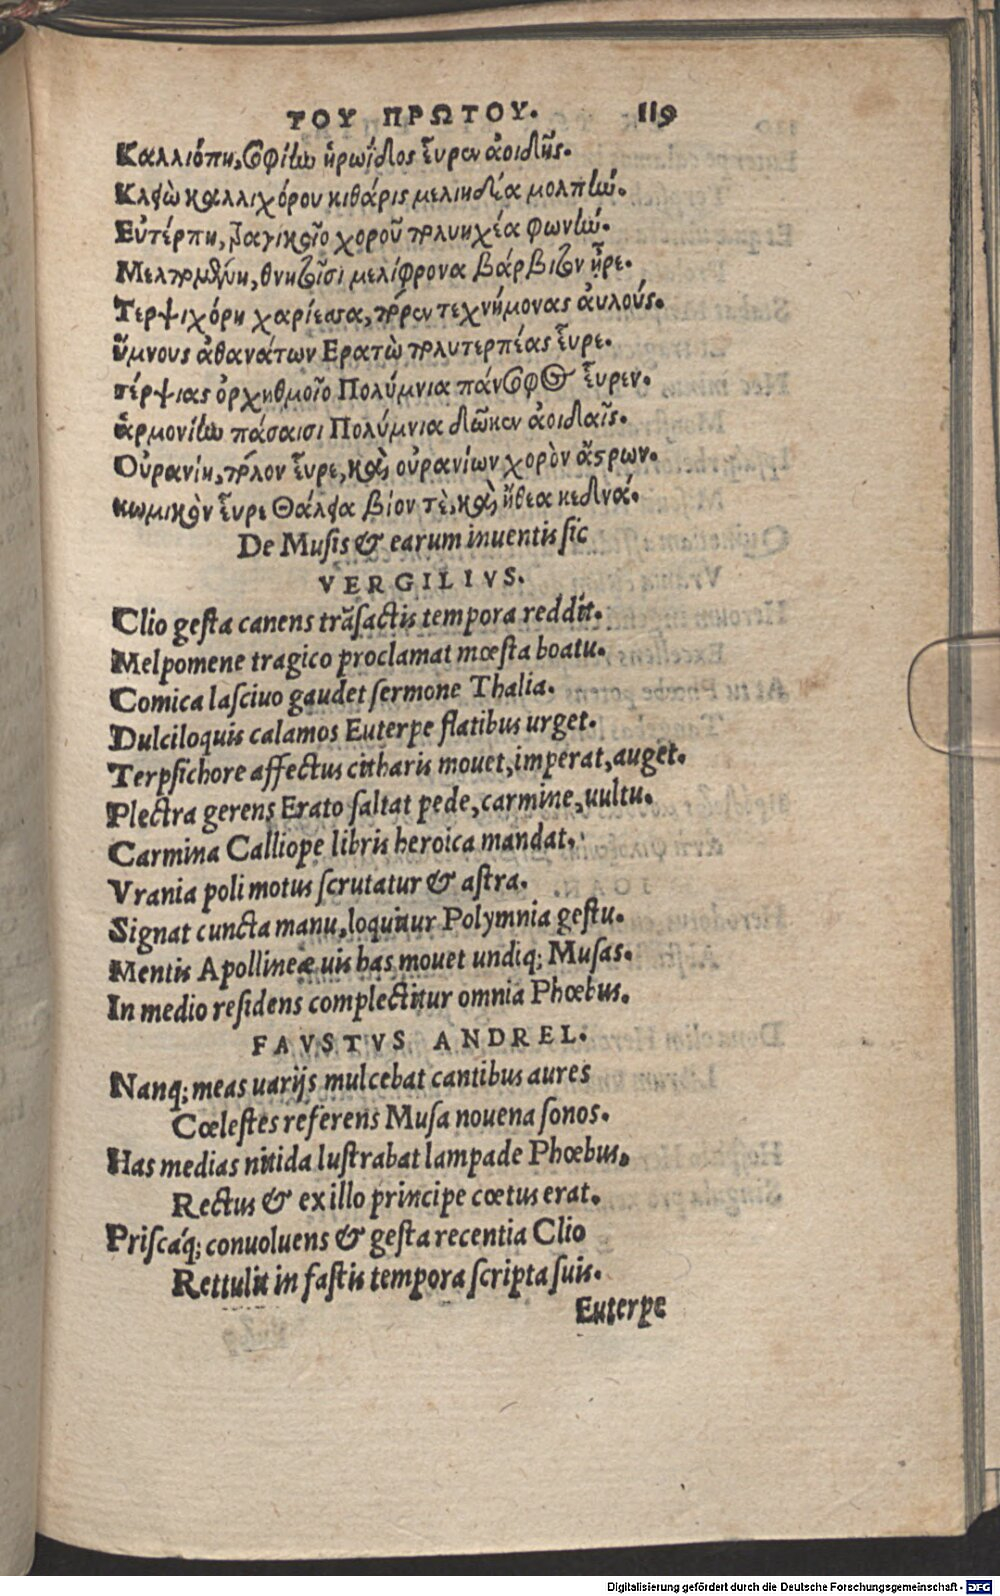 ΤΟΥ ΠΡΩΤΟΥ. 119
Καλλιόπη, σοφίην ἡρωΐδος εὗρεν ἀοιδῆς.
Κλειὼ καλλιχόρου κιθάρις μελιηδέα μολπήν.
Εὐτέρπη, τραγικοῖο χοροῦ πολυηχέα φωνήν.
Μελπομένη, θνητοῖσι μελίφρονα βάρβιτον ηὗρε.
Τερψιχόρη χαρίεσσα, πόρεν τεχνήμονας αὐλούς.
ὕμνους ἀθανάτων Ερατὼ πολυτερπέας εὗρε.
τέρψιας ὀρχηθμοῖο Πολύμνια πάνσοφος εὗρεν.
ἁρμονίην πάσαισι Πολύμνια δῶκεν ἀοιδαῖς.
Οὐρανίη, πόλον εὗρε, καὶ οὐρανίων χορὸν ἄστρων.
κωμικὸν εὗρε Θάλεια βίον τὲ, καὶ ἤθεα κεδνά.
De Musis & earum inuentis sic
VERGILIVS.
Clio gesta canens trãsactis tempora reddit.
Melpomene tragico proclamat mœsta boatu.
Comica lasciuo gaudet sermone Thalia.
Dulciloquis calamos Euterpe flatibus urget.
Terpsichore affectus citharis mouet, imperat, auget.
Plectra gerens Erato saltat pede, carmine, uultu.
Carmina Calliope libris heroica mandat.
Vrania poli motus scrutatur & astra.
Signat cuncta manu, loquitur Polymnia gestu.
Mentis Apollineæ uis has mouet undiq; Musas.
In medio residens complectitur omnia Phœbus.
FAVSTVS ANDREL.
Nanq; meas uarijs mulcebat cantibus aures
Cœlestes referens Musa nouena sonos.
Has medias nitida lustrabat lampade Phœbus,
Rectus & ex illo principe cœtus erat.
Priscáq; conuoluens & gesta recentia Clio
Rettulit in fastis tempora scripta suis.
Euterpe
Digitalisierung gefördert durch die Deutsche Forschungsgemeinschaft - DFG